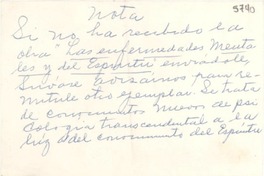 5740
Nota
Si no ha recibido la
obra "Las enfermedades Menta
les y del Espíritu" enviadole,
Sírvase avisarnos para re-
mitirle otro ejemplar. Se trata
de conocimientos nuevos de psi
cología transcendental a la
luz del conocimiento del Espíritu